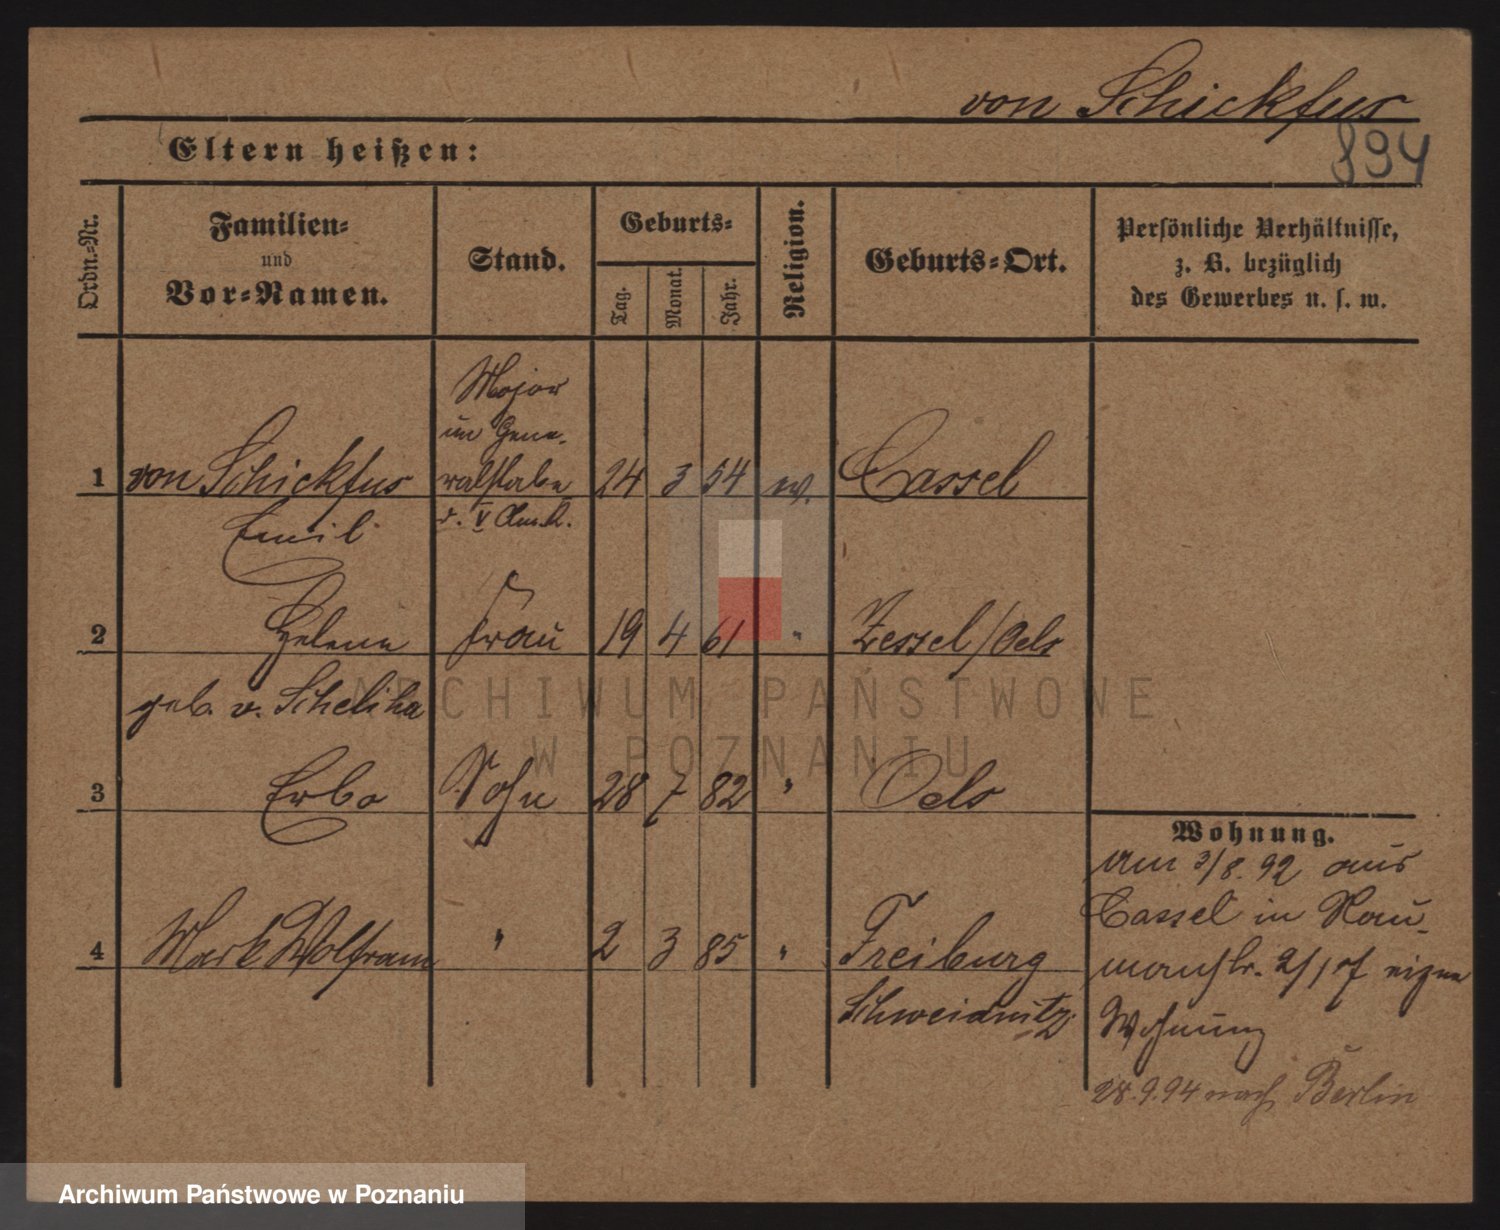 von Schickfus
894
Eltern heißen:
Ordn.-Nr.
Familien-
und
Vor-Namen.
Stand.
Geburts-
Tag.
Monat.
Jahr.
Religion.
Geburts-Ort.
Persönliche Verhältnisse,
z. B. bezüglich
des Gewerbes u. s. w.
Major
im Gene-
1 von Schickfus ralstabe 24 3 54 ev. Cassel
Emil d. V Am.K.
2 Helene Frau 19 4 61 " Zessel/Oels
geb. v. Scheliha
3 Erbo Sohn 28 7 82 " Oels
4 Mark Wolfram " 2 3 85 " Freiburg
Schweidnitz
Wohnung.
Am 3/8. 92 aus
Cassel in Nau-
mannstr. 2/ eigene
Wohnung
28.9.94 nach Berlin
ARCHIWUM PAŃSTWOWE
W POZNANIU
Archiwum Państwowe w Poznaniu